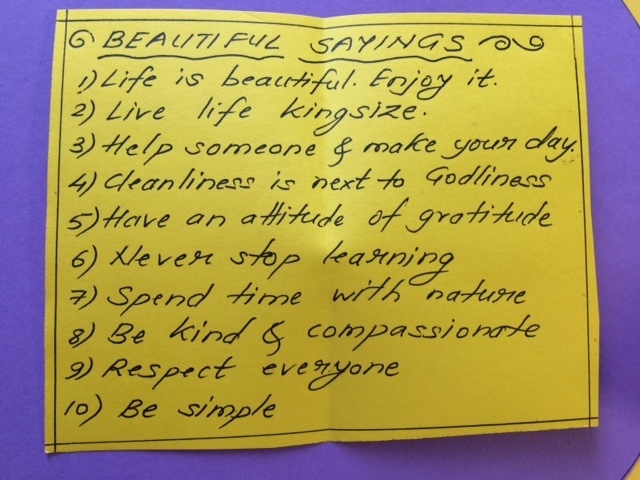 BEAUTIFUL SAYINGS
1) Life is beautiful. Enjoy it.
2) Live life kingsize.
3) Help someone & make your day.
4) Cleanliness is next to Godliness
5) Have an attitude of gratitude
6) Never stop learning
7) Spend time with nature
8) Be kind & compassionate
9) Respect everyone
10) Be simple